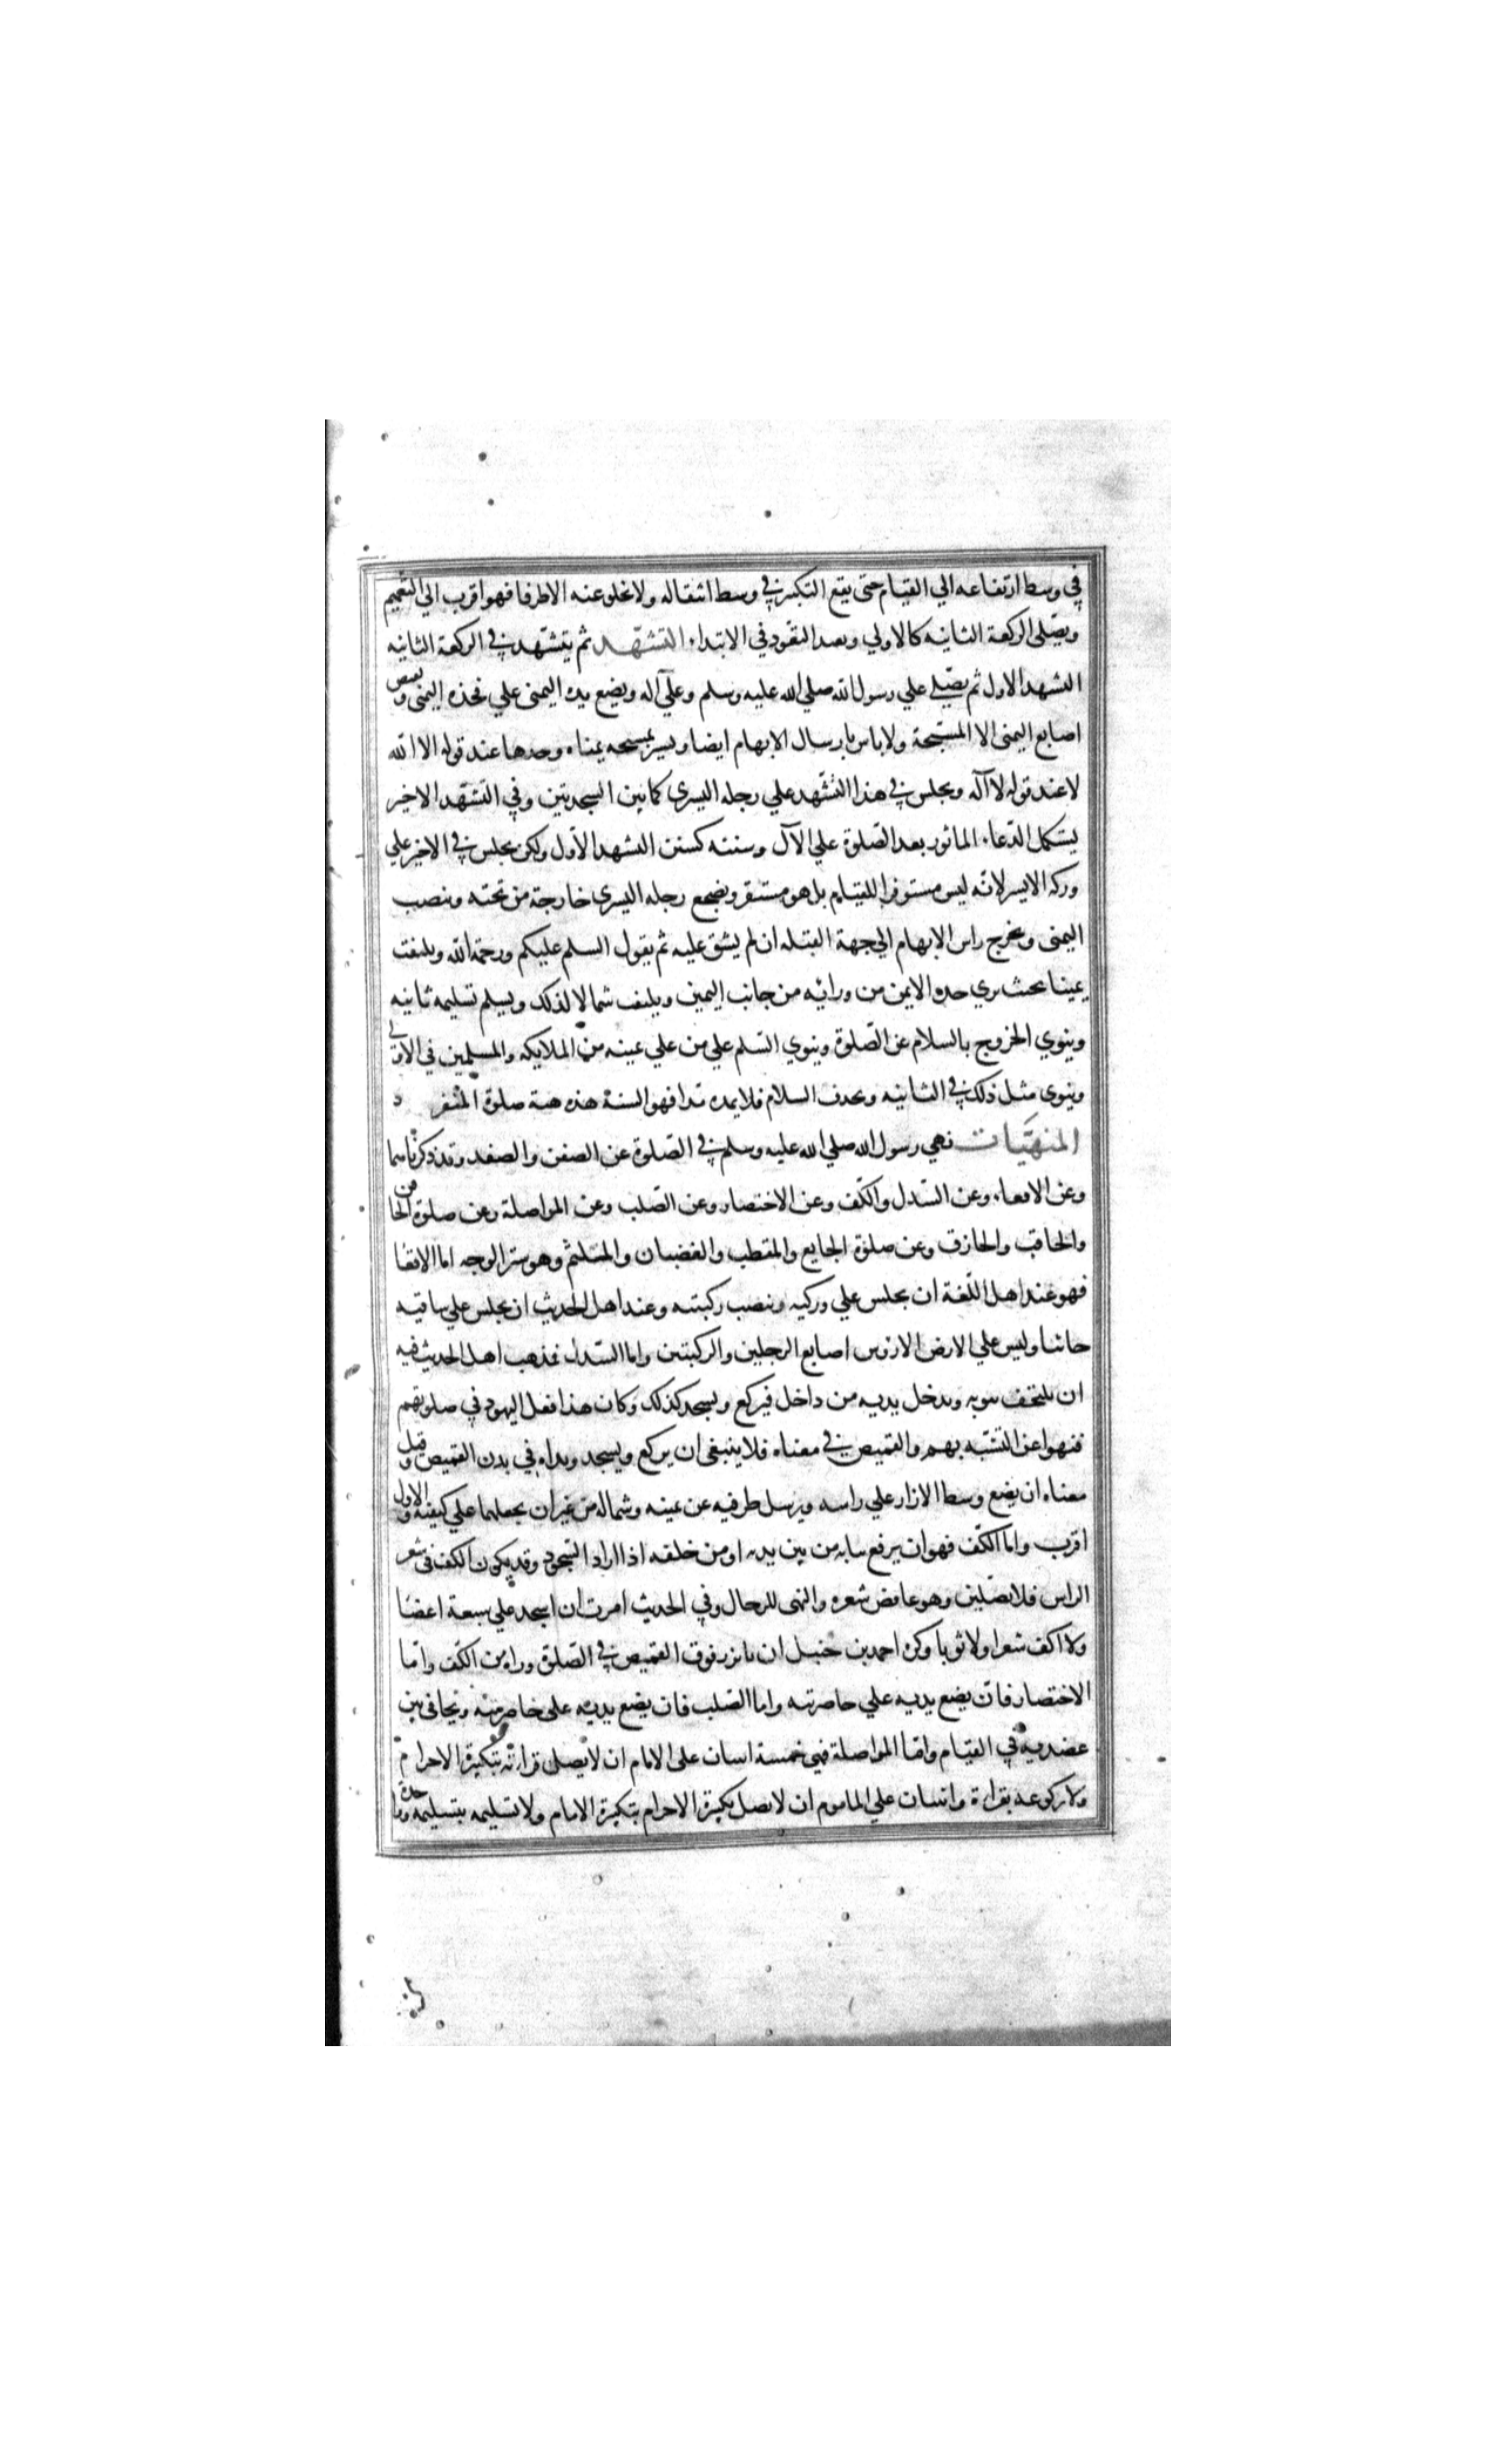 في وسط ارتفاعه الي القيام حتى يقع التكبير في وسط انتقاله ولا يخلو عنه الا طرفا فهو اقرب الي التعميم
ويصلى الركعة الثانيه كالاولي ويعيد التعوذ في الابتداء التشهد ثم يتشهد في الركعة الثانيه
التشهد الاول ثم يصلي علي رسول الله صلي الله عليه وسلم وعلي آله ويضع يده اليمنى علي فخذه اليمنى ويقبض
اصابع اليمنى الا المسبحة ولا باس بارسال الابهام ايضا ويشير بمسبحه يمناه وحدها عند قوله الا الله
لا عند قوله لا آله ويجلس في هذا التشهد علي رجله اليسري كما بين السجدتين وفي التشهد الاخير
يستكمل الدعاء الماثور بعد الصلوة علي الآل وسننه كسنن التشهد الاول ولكن يجلس في الاخير علي
وركه الايسر لانه ليس مستوفزا للقيام بل هو مستقر ويضجع رجله اليسري خارجة من تحته وينصب
اليمنى ويخرج راس الابهام الي جهة القبله ان لم يشق عليه ثم يقول السلم عليكم ورحمة الله ويلتفت
يمينا بحيث يري خده الايمن من ورائه من جانب اليمين ويلتفت شمالا لذلك ويسلم تسليمه ثانيه
وينوي الخروج بالسلام عن الصلوة وينوي السلم علي من علي يمينه من الملايكه والمسلمين في الاولي
وينوى مثل ذلك في الثانيه ويحذف السلام فلا يمده مدا فهو السنة هذه هيئة صلوة المنفرد
المنهيات نهي رسول الله صلي الله عليه وسلم في الصلوة عن الصفن والصفد وقد ذكرناهما
وعن الاقعاء وعن السدل والكف وعن الاختصار وعن الصلب وعن المواصلة وعن صلوة الحاقن
والحاقب والحازق وعن صلوة الجايع والمقطب والغضبان والمتلثم وهو ستر الوجه اما الاقعا
فهو عند اهل اللغة ان يجلس علي وركيه وينصب ركبتيه وعند اهل الحديث ان يجلس علي ساقيه
جاثيا وليس علي الارض الا روس اصابع الرجلين والركبتين واما السدل فمذهب اهل الحديث فيه
ان يلتحف بثوبه ويدخل يديه من داخل فيركع ويسجد كذلك وكان هذا فعل اليهود في صلوتهم
فنهوا عن التشبه بهم والقميص في معناه فلا ينبغى ان يركع ويسجد ويداه في بدن القميص وقيل
معناه ان يضع وسط الازار علي راسه ويرسل طرفيه عن يمينه وشماله من غير ان يجعلهما علي كتفيه والاول
اقرب واما الكف فهو ان يرفع ثيابه من بين يديه او من خلفه اذا اراد السجود وقد يكون الكف فى شعر
الراس فلا يصلين وهو عاقص شعره والنهى للرجال وفي الحديث امرت ان اسجد علي سبعة اعضا
ولا اكف شعرا ولا ثوبا وكره احمد بن حنبل ان ياتزر فوق القميص في الصلوة وراه من الكف واما
الاختصار فان يضع يديه علي خاصرتيه واما الصلب فان يضع يديه على خاصرتيه ويجافى بين
عضديه في القيام واما المواصلة فهي خمسة اثنان على الامام ان لا يصل قراته بتكبيرة الاحرام
ولا ركوعه بقراءة واثنان علي الماموم ان لا يصل تكبيرة الاحرام بتكبيرة الامام ولا تسليمه بتسليمه وواحدة